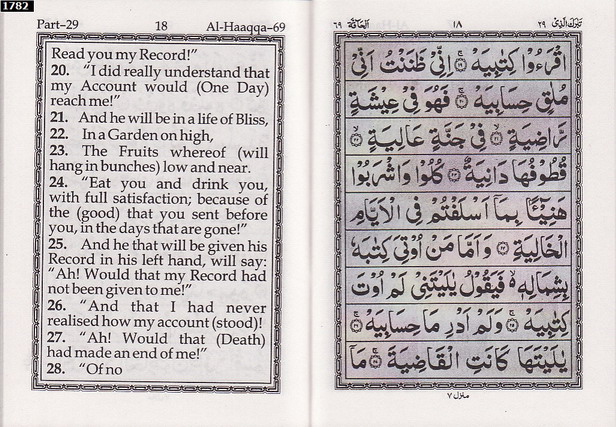 1782
Part-29 18 Al-Haaqqa-69
Read you my Record!"
20. "I did really understand that
my Account would (One Day)
reach me!"
21. And he will be in a life of Bliss,
22. In a Garden on high,
23. The Fruits whereof (will
hang in bunches) low and near.
24. "Eat you and drink you,
with full satisfaction; because of
the (good) that you sent before
you, in the days that are gone!"
25. And he that will be given his
Record in his left hand, will say:
"Ah! Would that my Record had
not been given to me!"
26. "And that I had never
realised how my account (stood)!
27. "Ah! Would that (Death)
had made an end of me!"
28. "Of no
تبرك الذى ٢٩ ١٨ الحآقة ٦٩
اقْرَءُوْا كِتٰبِيَهْ ۝١٩ اِنِّىْ ظَنَنْتُ اَنِّىْ
مُلٰقٍ حِسَابِيَهْ ۝٢٠ فَهُوَ فِىْ عِيْشَةٍ
رَّاضِيَةٍ ۝٢١ فِىْ جَنَّةٍ عَالِيَةٍ ۝٢٢
قُطُوْفُهَا دَانِيَةٌ ۝٢٣ كُلُوْا وَاشْرَبُوْا
هَنِيْٓـًٔا بِمَآ اَسْلَفْتُمْ فِى الْاَيَّامِ
الْخَالِيَةِ ۝٢٤ وَاَمَّا مَنْ اُوْتِىَ كِتٰبَهٗ
بِشِمَالِهٖ ەۙ فَيَقُوْلُ يٰلَيْتَنِىْ لَمْ اُوْتَ
كِتٰبِيَهْ ۝٢٥ وَلَمْ اَدْرِ مَا حِسَابِيَهْ ۝٢٦
يٰلَيْتَهَا كَانَتِ الْقَاضِيَةَ ۝٢٧ مَآ
منزل ٧